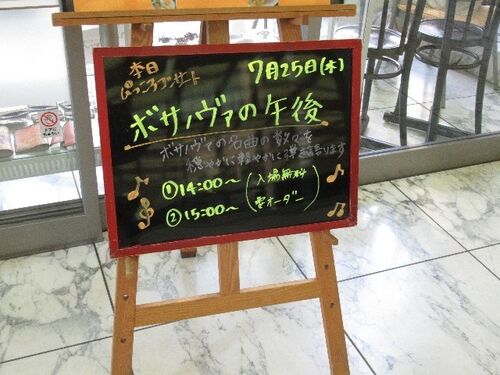 本日
7月25日(木)
ボサノヴァの午後
ボサノヴァの名曲の数々を
穏やかに軽やかに弾き語ります
①14:00～
②15:00～
(入場無料
要オーダー)